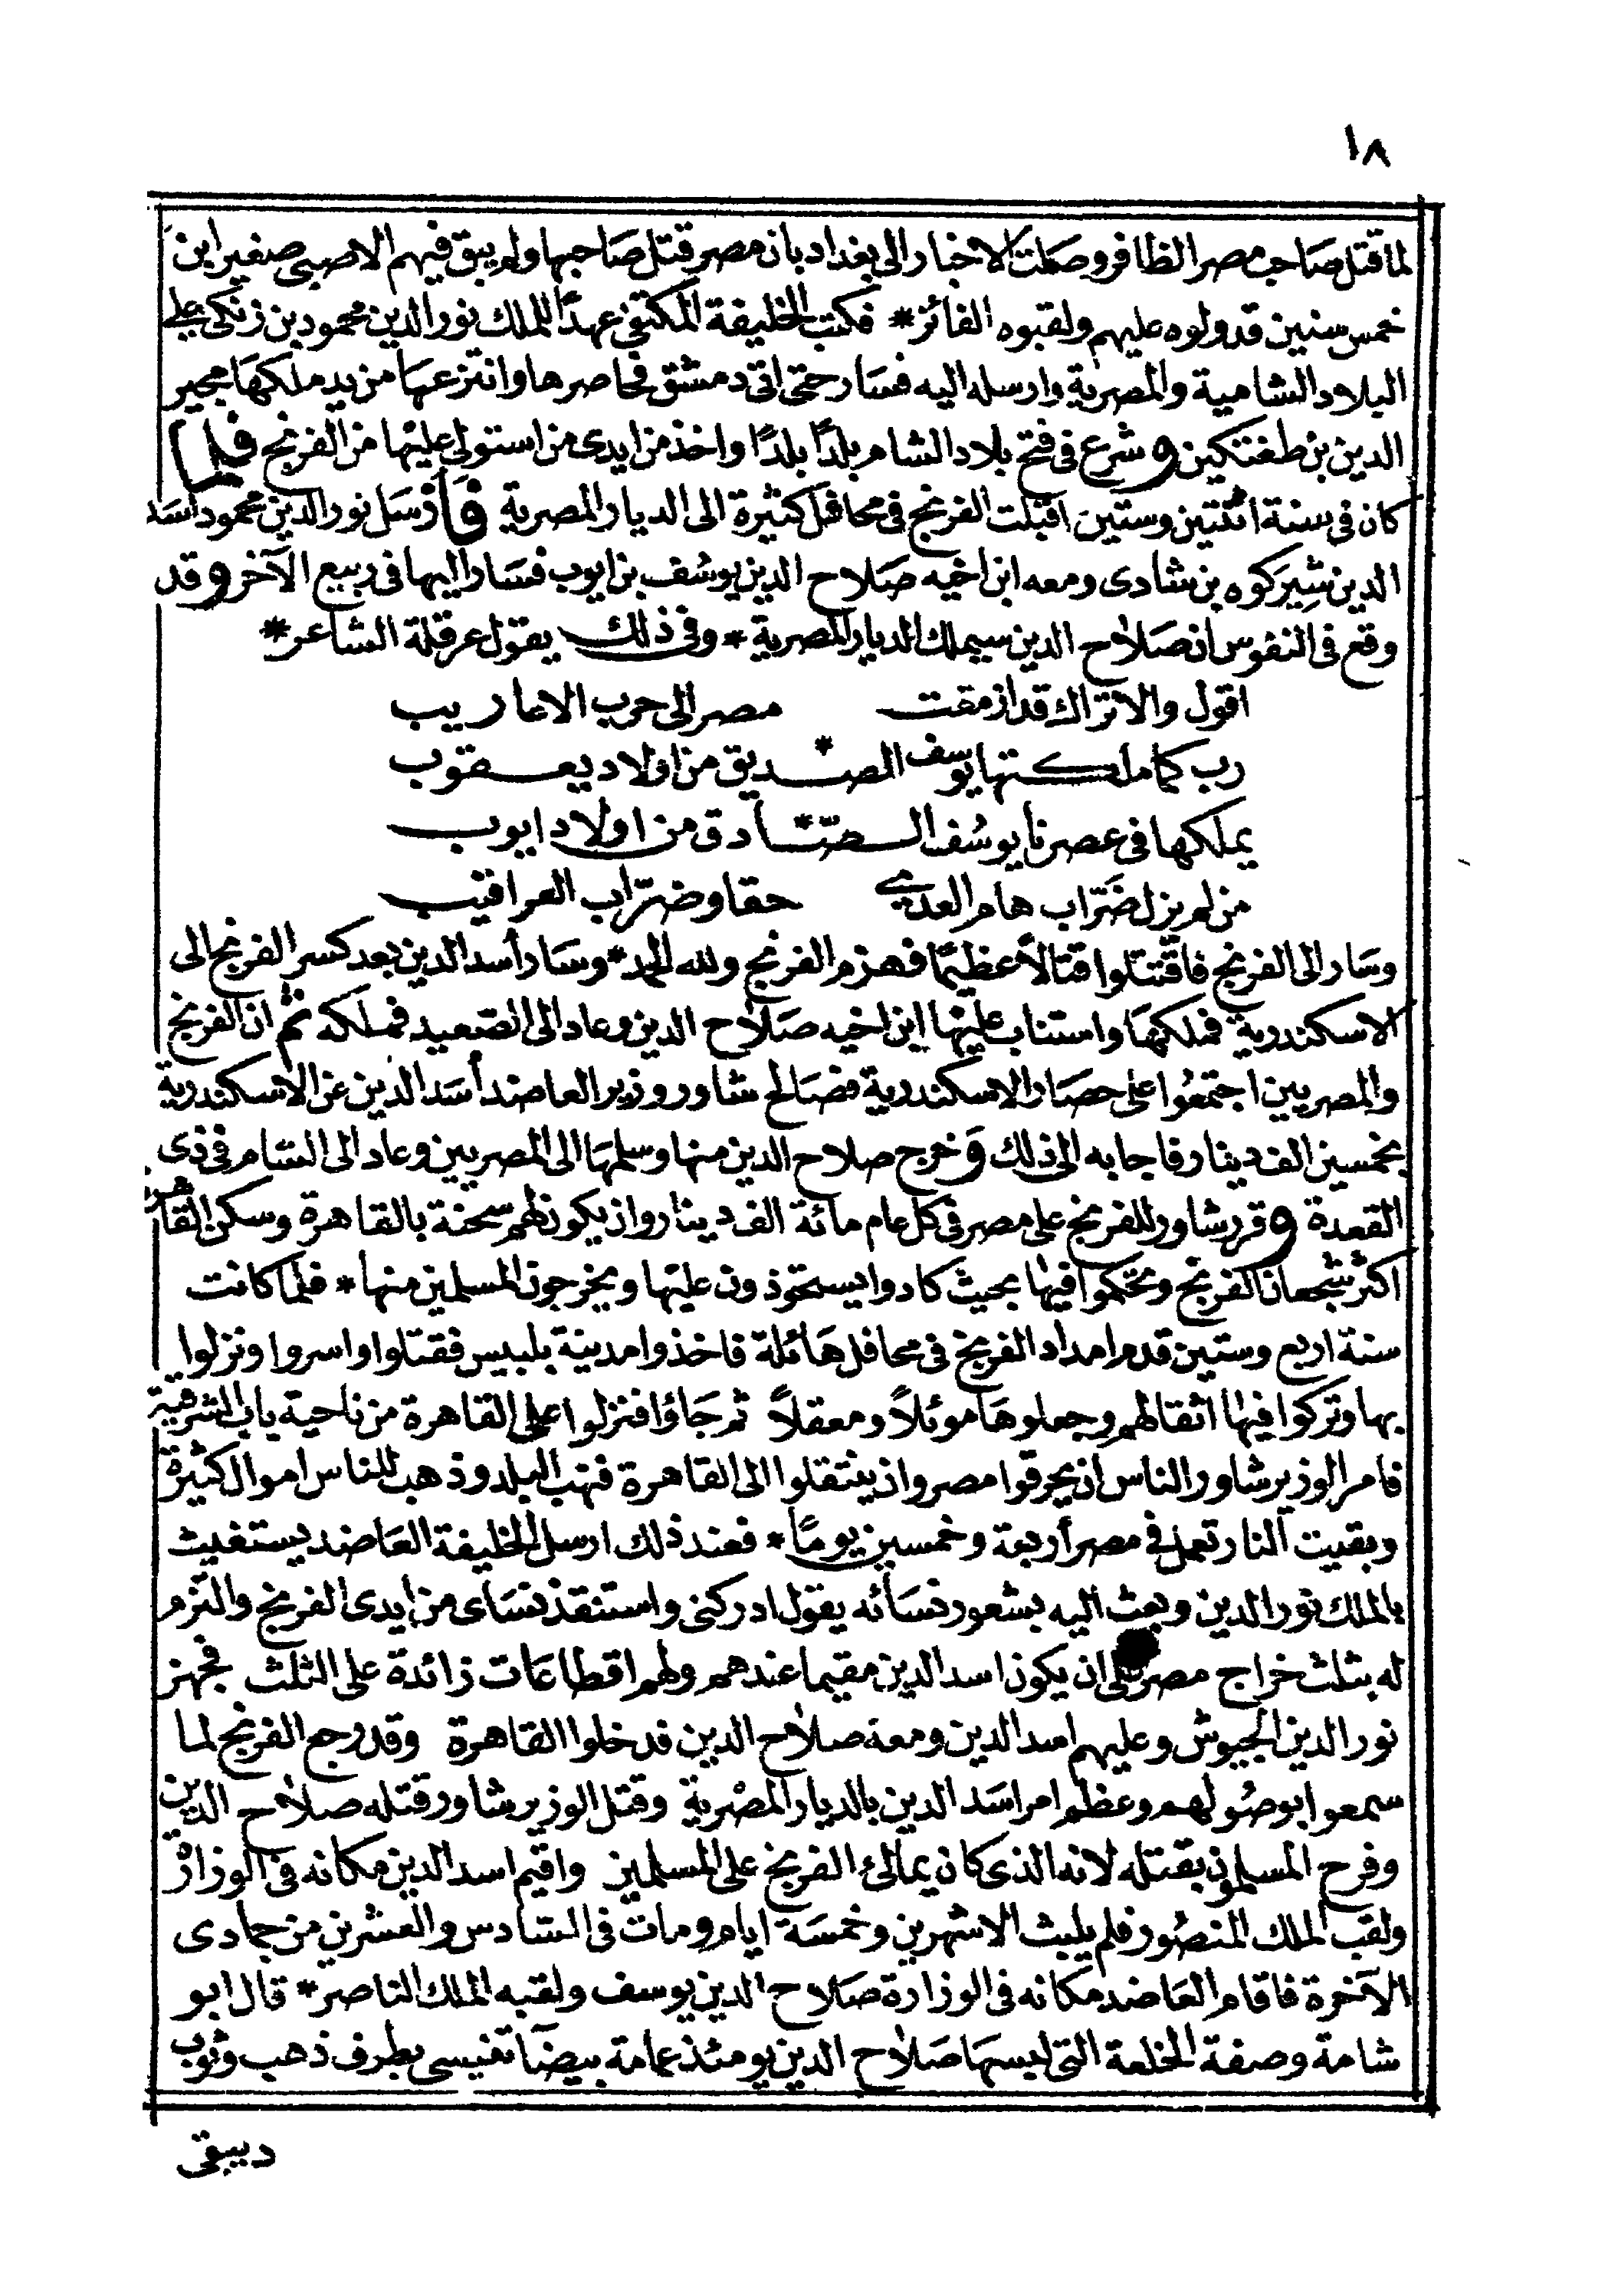 ١٨
لما قتل صاحب مصر الظافر وصلت الاخبار الى بغداد بان مصر قتل صاحبها ولم يبق فيهم الا صبى صغير ابن
خمس سنين قد ولوه عليهم ولقبوه الفائز * فكتب الخليفة المكتفى عهدًا للملك نور الدين محمود بن زنكى على
البلاد الشامية والمصرية وارسله اليه فسار حتى اتى دمشق فحاصرها وانتزعها من يد ملكها مجير
الدين بن طغتكين و شرع فى فتح بلاد الشام بلدًا بلدًا واخذ من ايدى من استولى عليها من الفرنج فلما
كان فى سنة اثنتين وستين اقبلت الفرنج فى محافل كثيرة الى الديار المصرية فأرسل نور الدين محمود اسد
الدين شيركوه بن شادى ومعه ابن اخيه صلاح الدين يوسف بن ايوب فسار اليها فى ربيع الآخر وقد
وقع فى النفوس ان صلاح الدين سيملك الديار المصرية * وفى ذلك يقول عرقلة الشاعر *
اقول والاتراك قد ازمقت مصر الى حرب الاعاريب
رب كما ملكتها يوسف * الصديق من اولاد يعقوب
يملكها فى عصرنا يوسف * الصّادق من اولاد ايوب
من لم يزل ضرّاب هام العدى حقا وضرّاب العراقيب
وسار الى الفرنج فاقتتلوا قتالاً عظيمًا فهزم الفرنج ولله الحمد * وسار أسد الدين بعد كسر الفرنج الى
الاسكندرية فملكها واستناب عليها ابن اخيه صلاح الدين وعاد الى الصعيد فملكه ثم ان الفرنج
والمصريين اجتمعوا على حصار الاسكندرية فصالح شاور وزير العاضد أسد الدين عن الاسكندرية
بخمسين الف دينار فاجابه الى ذلك وخرج صلاح الدين منها وسلمها الى المصريين وعاد الى الشام فى ذى
القعدة و قرر شاور للفرنج على مصر فى كل عام مائة الف دينار وان يكون لهم شحنة بالقاهرة وسكن القاهرة
اكثر شجعان الفرنج وتحكموا فيها بحيث كادوا يستحوذون عليها ويخرجون المسلمين منها * فلما كانت
سنة اربع وستين قدم امداد الفرنج فى محافل هائلة فاخذوا مدينة بلبيس فقتلوا واسروا ونزلوا
بها وتركوا فيها اثقالهم وجعلوها موئلاً ومعقلاً ثم جاؤا فنزلوا على القاهرة من ناحية باب الشرقية
فامر الوزير شاور الناس ان يحرقوا مصر وان ينتقلوا الى القاهرة فنهب البلد وذهب للناس اموال كثيرة
وبقيت النار تعمل فى مصر أربعة وخمسين يومًا * فعند ذلك ارسل الخليفة العاضد يستغيث
بالملك نور الدين وبعث اليه بشعور نسائه يقول ادركنى واستنقذ نساى من ايدى الفرنج والتزم
له بثلث خراج مصر على ان يكون اسد الدين مقيما عندهم ولهم اقطاعات زائدة على الثلث فجهز
نور الدين الجيوش وعليهم اسد الدين ومعه صلاح الدين فدخلوا القاهرة وقد رجع الفرنج لما
سمعوا بوصولهم وعظم امر اسد الدين بالديار المصرية وقتل الوزير شاور قتله صلاح الدين
وفرح المسلمون بقتله لانه الذى كان يمالئ الفرنج على المسلمين واقيم اسد الدين مكانه فى الوزارة
ولقب الملك المنصور فلم يلبث الا شهرين وخمسة ايام ومات فى السادس والعشرين من جمادى
الآخرة فاقام العاضد مكانه فى الوزارة صلاح الدين يوسف ولقبه الملك الناصر * قال ابو
شامة وصفة الخلعة التى لبسها صلاح الدين يومئذ عمامة بيضآ تنيسى بطرف ذهب وثوب
دبيقى